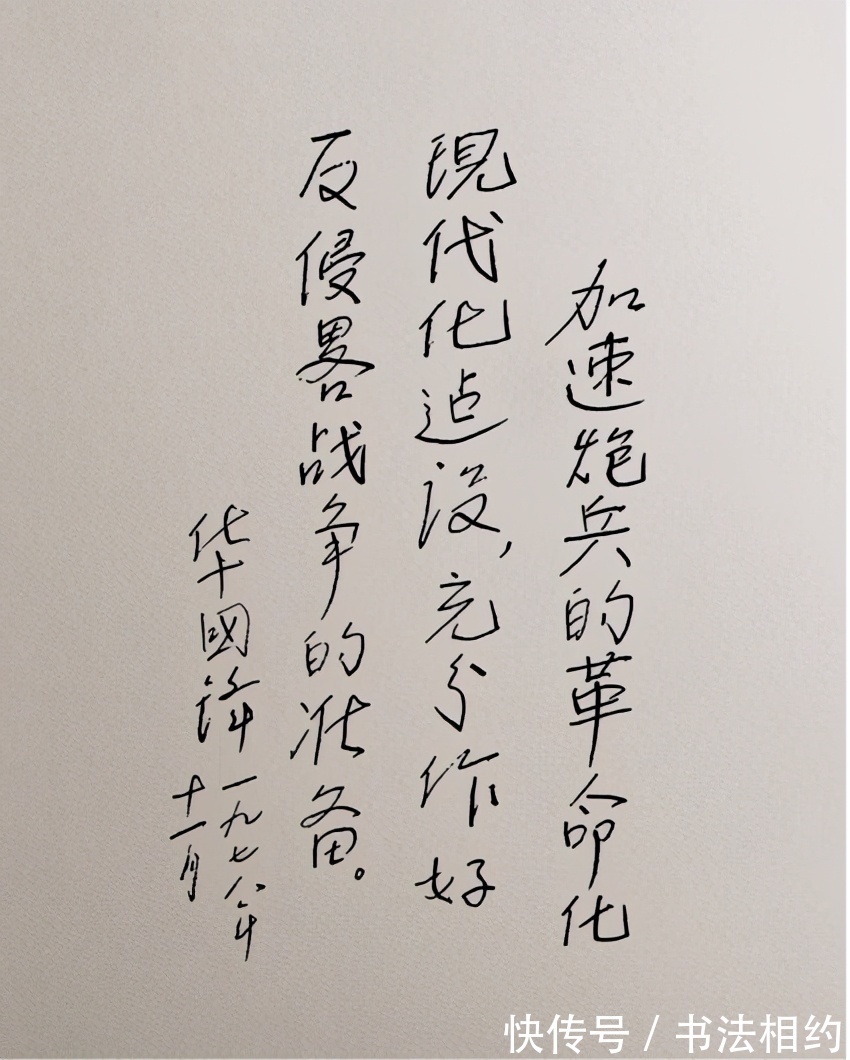 加速炮兵的革命化
現代化迠设，充分作好
反侵畧战争的准备。
华國锋一九七八年
十一月
快传号/书法相约